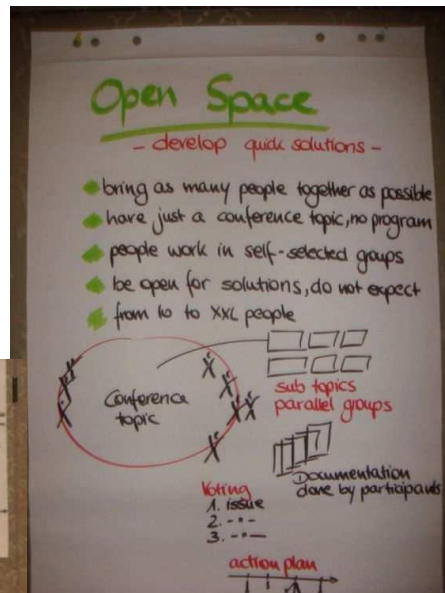 Open Space
- develop quick solutions -
bring as many people together as possible
have just a conference topic, no program
people work in self-selected groups
be open for solutions, do not expect
from 10 to XXL people
Conference
topic
sub topics
parallel groups
Documentation
done by participants
Voting
1. issue
2. -"-
3. -"-
action plan